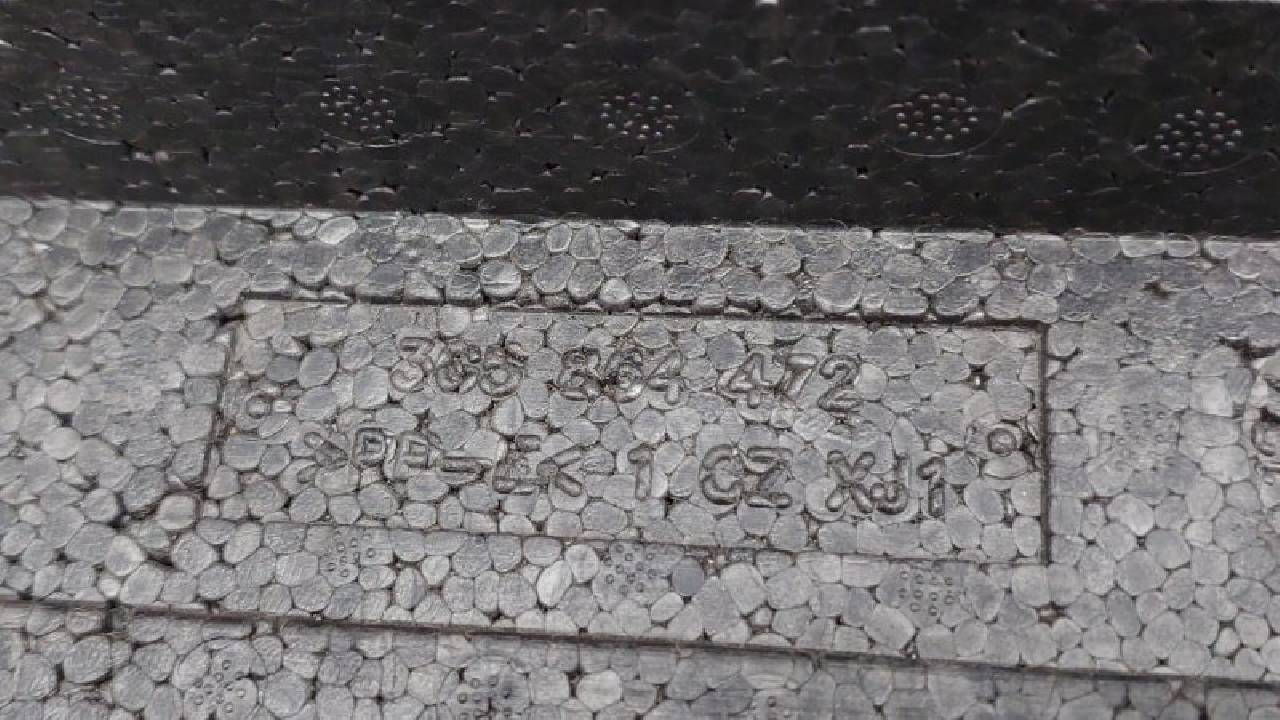 3G5 864 472
>PP-E< 1 CZ XJ1